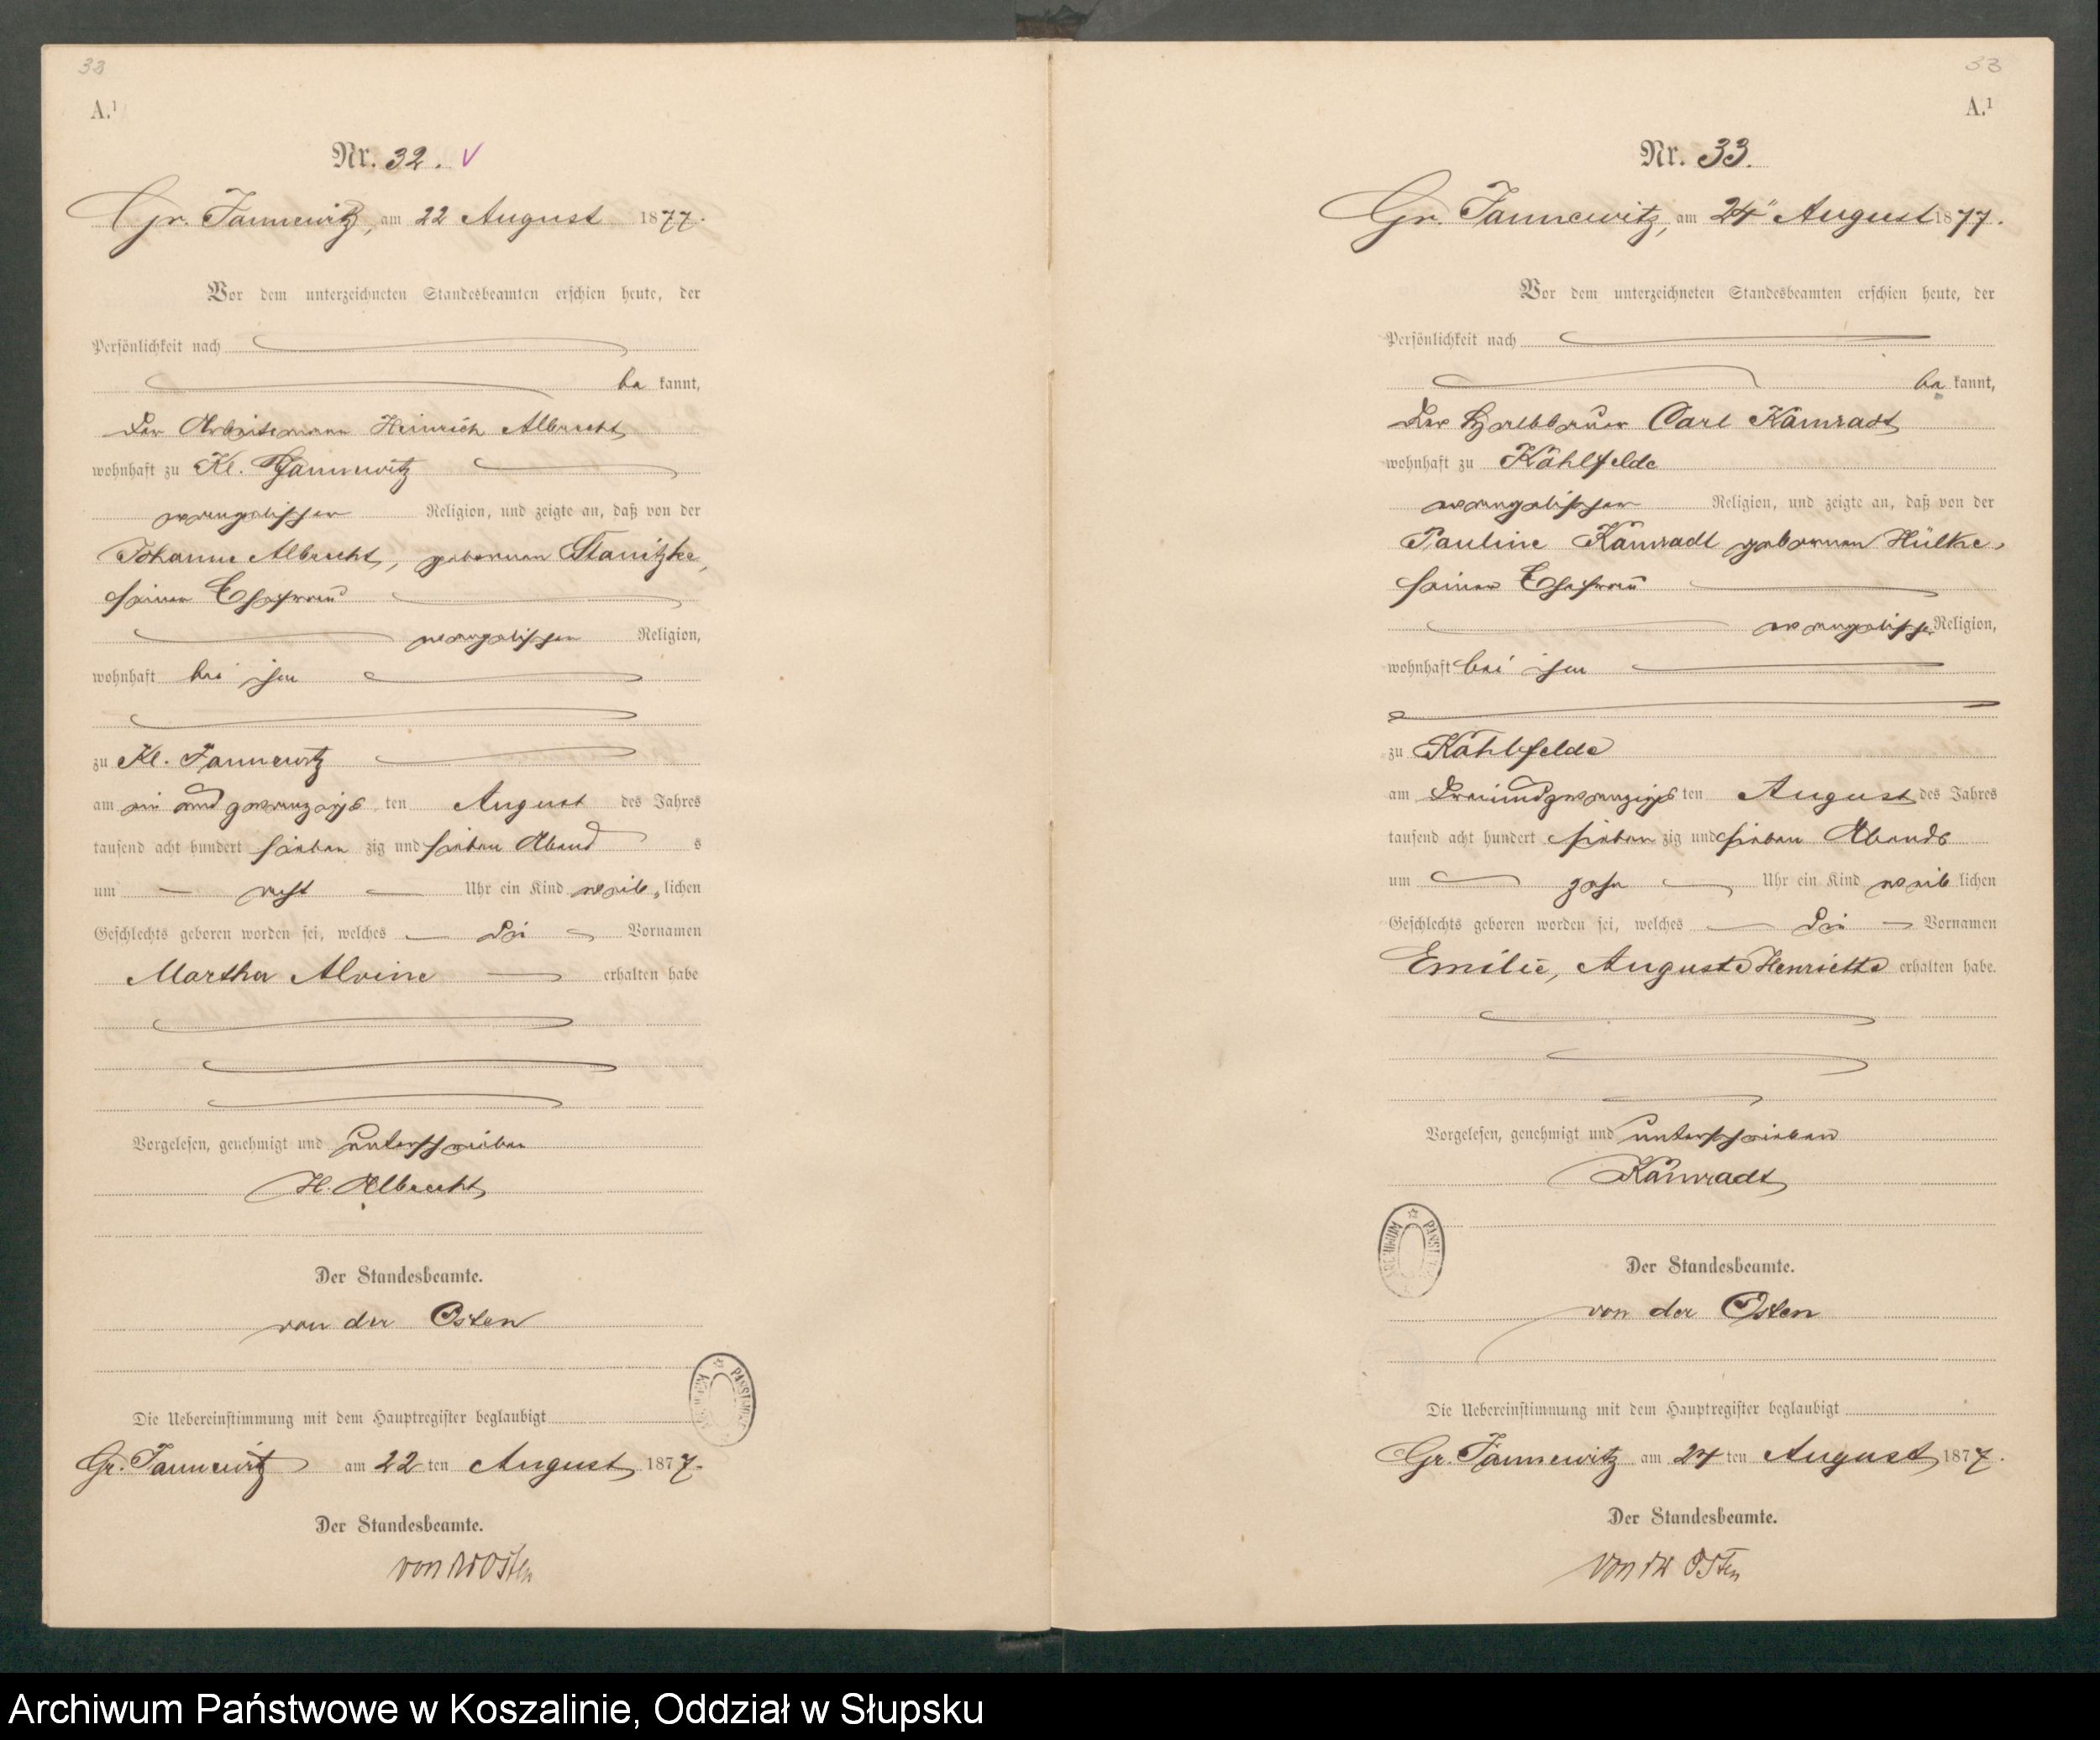 33
A.¹
Nr. 32. V
Gr. Jannewitz, am 22 August 1877.
Vor dem unterzeichneten Standesbeamten erschien heute, der
Persönlichkeit nach
be kannt,
der Arbeitsmann Heinrich Albrecht
wohnhaft zu Kl. Jannewitz
evangelischer Religion, und zeigte an, daß von der
Johanne Albrecht, geborenen Stanitzke,
seiner Ehefrau
evangelischer Religion,
wohnhaft bei ihm
zu Kl. Jannewitz
am ein und zwanzigs ten August des Jahres
tausend acht hundert sieben zig und sieben Abend s
um acht Uhr ein Kind weib lichen
Geschlechts geboren worden sei, welches die Vornamen
Martha Alvine erhalten habe
Vorgelesen, genehmigt und unterschrieben
H. Albrecht
Der Standesbeamte.
von der Osten
ARCHIWUM PAŃSTWOWE
Die Uebereinstimmung mit dem Hauptregister beglaubigt
Gr. Jannewitz am 22 ten August 1877.
Der Standesbeamte.
von der Osten
33
A.¹
Nr. 33.
Gr. Jannewitz, am 24 August 1877.
Vor dem unterzeichneten Standesbeamten erschien heute, der
Persönlichkeit nach
be kannt,
der Halbbauer Carl Kamradt
wohnhaft zu Kählfelde
evangelischer Religion, und zeigte an, daß von der
Pauline Kamradt geborenen Hülke,
seiner Ehefrau
evangelischer Religion,
wohnhaft bei ihm
zu Kählfelde
am dreiundzwanzigs ten August des Jahres
tausend acht hundert sieben zig und sieben Abends
um zehn Uhr ein Kind weib lichen
Geschlechts geboren worden sei, welches die Vornamen
Emilie, Auguste Henriette erhalten habe.
Vorgelesen, genehmigt und unterschrieben
Kamradt
ARCHIWUM PAŃST
Der Standesbeamte.
von der Osten
Die Uebereinstimmung mit dem Hauptregister beglaubigt
Gr. Jannewitz am 24 ten August 1877.
Der Standesbeamte.
von der Osten
Archiwum Państwowe w Koszalinie, Oddział w Słupsku